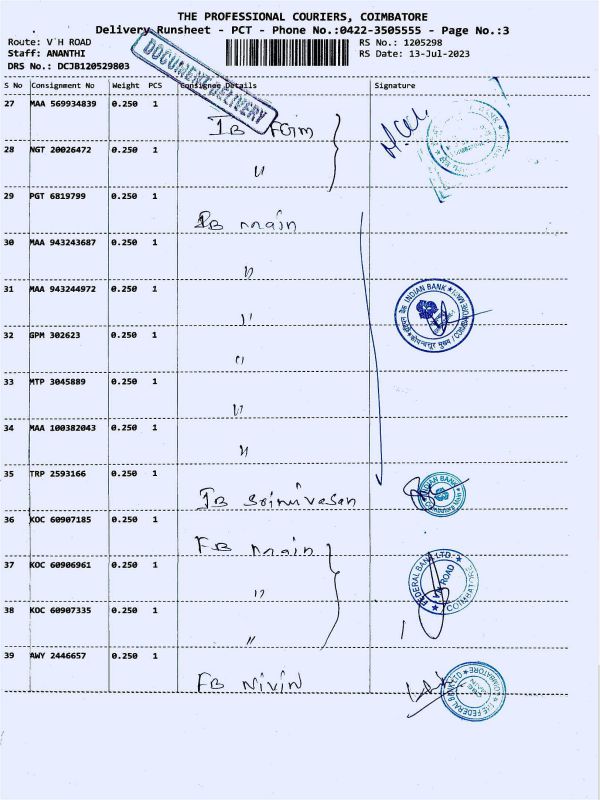 THE PROFESSIONAL COURIERS, COIMBATORE
Delivery Runsheet - PCT - Phone No.:0422-3505555 - Page No.:3
Route: V'H ROAD
RS No.: 1205298
Staff: ANANTHI
RS Date: 13-Jul-2023
DRS No.: DCJB120529803
DOCUMENT DELIVERY
S No Consignment No Weight PCS Consignee Details Signature
27 MAA 569934839 0.250 1
IB
28 NGT 20026472 0.250 1
"
29 PGT 6819799 0.250 1
IB main
30 MAA 943243687 0.250 1
"
31 MAA 943244972 0.250 1
"
INDIAN BANK
32 GPM 302623 0.250 1
"
33 MTP 3045889 0.250 1
"
34 MAA 100382043 0.250 1
"
35 TRP 2593166 0.250 1
IB Srinivasan
INDIAN BANK
36 KOC 60907185 0.250 1
FB main
37 KOC 60906961 0.250 1
"
FEDERAL BANK LTD.
VH ROAD
COIMBATORE
38 KOC 60907335 0.250 1
"
39 AWY 2446657 0.250 1
FB Nivin
THE FEDERAL BANK LTD
COIMBATORE